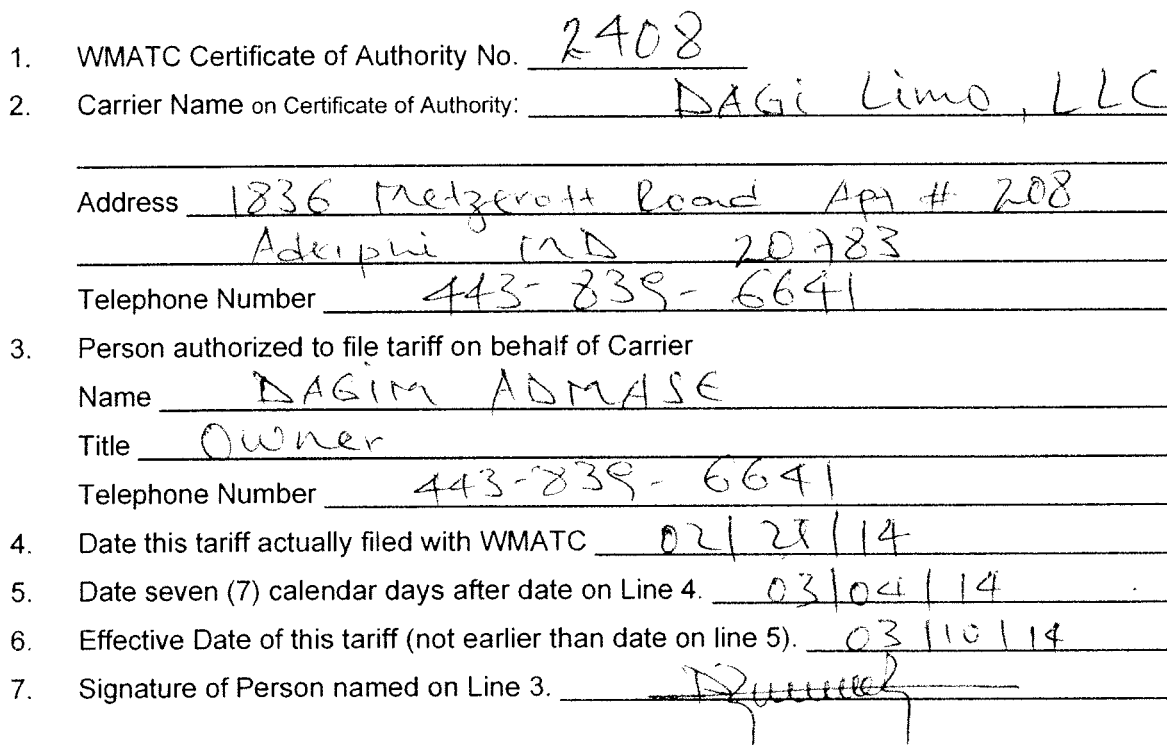 1. WMATC Certificate of Authority No. 2408
2. Carrier Name on Certificate of Authority: DAGi Limo, LLC
Address 1836 Metzerott Road Apt # 208
Adelphi MD 20783
Telephone Number 443-839-6641
3. Person authorized to file tariff on behalf of Carrier
Name DAGIM ADMASE
Title Owner
Telephone Number 443-839-6641
4. Date this tariff actually filed with WMATC
5. Date seven (7) calendar days after date on Line 4. 03/04/14
6. Effective Date of this tariff (not earlier than date on line 5). 03/10/14
7. Signature of Person named on Line 3.